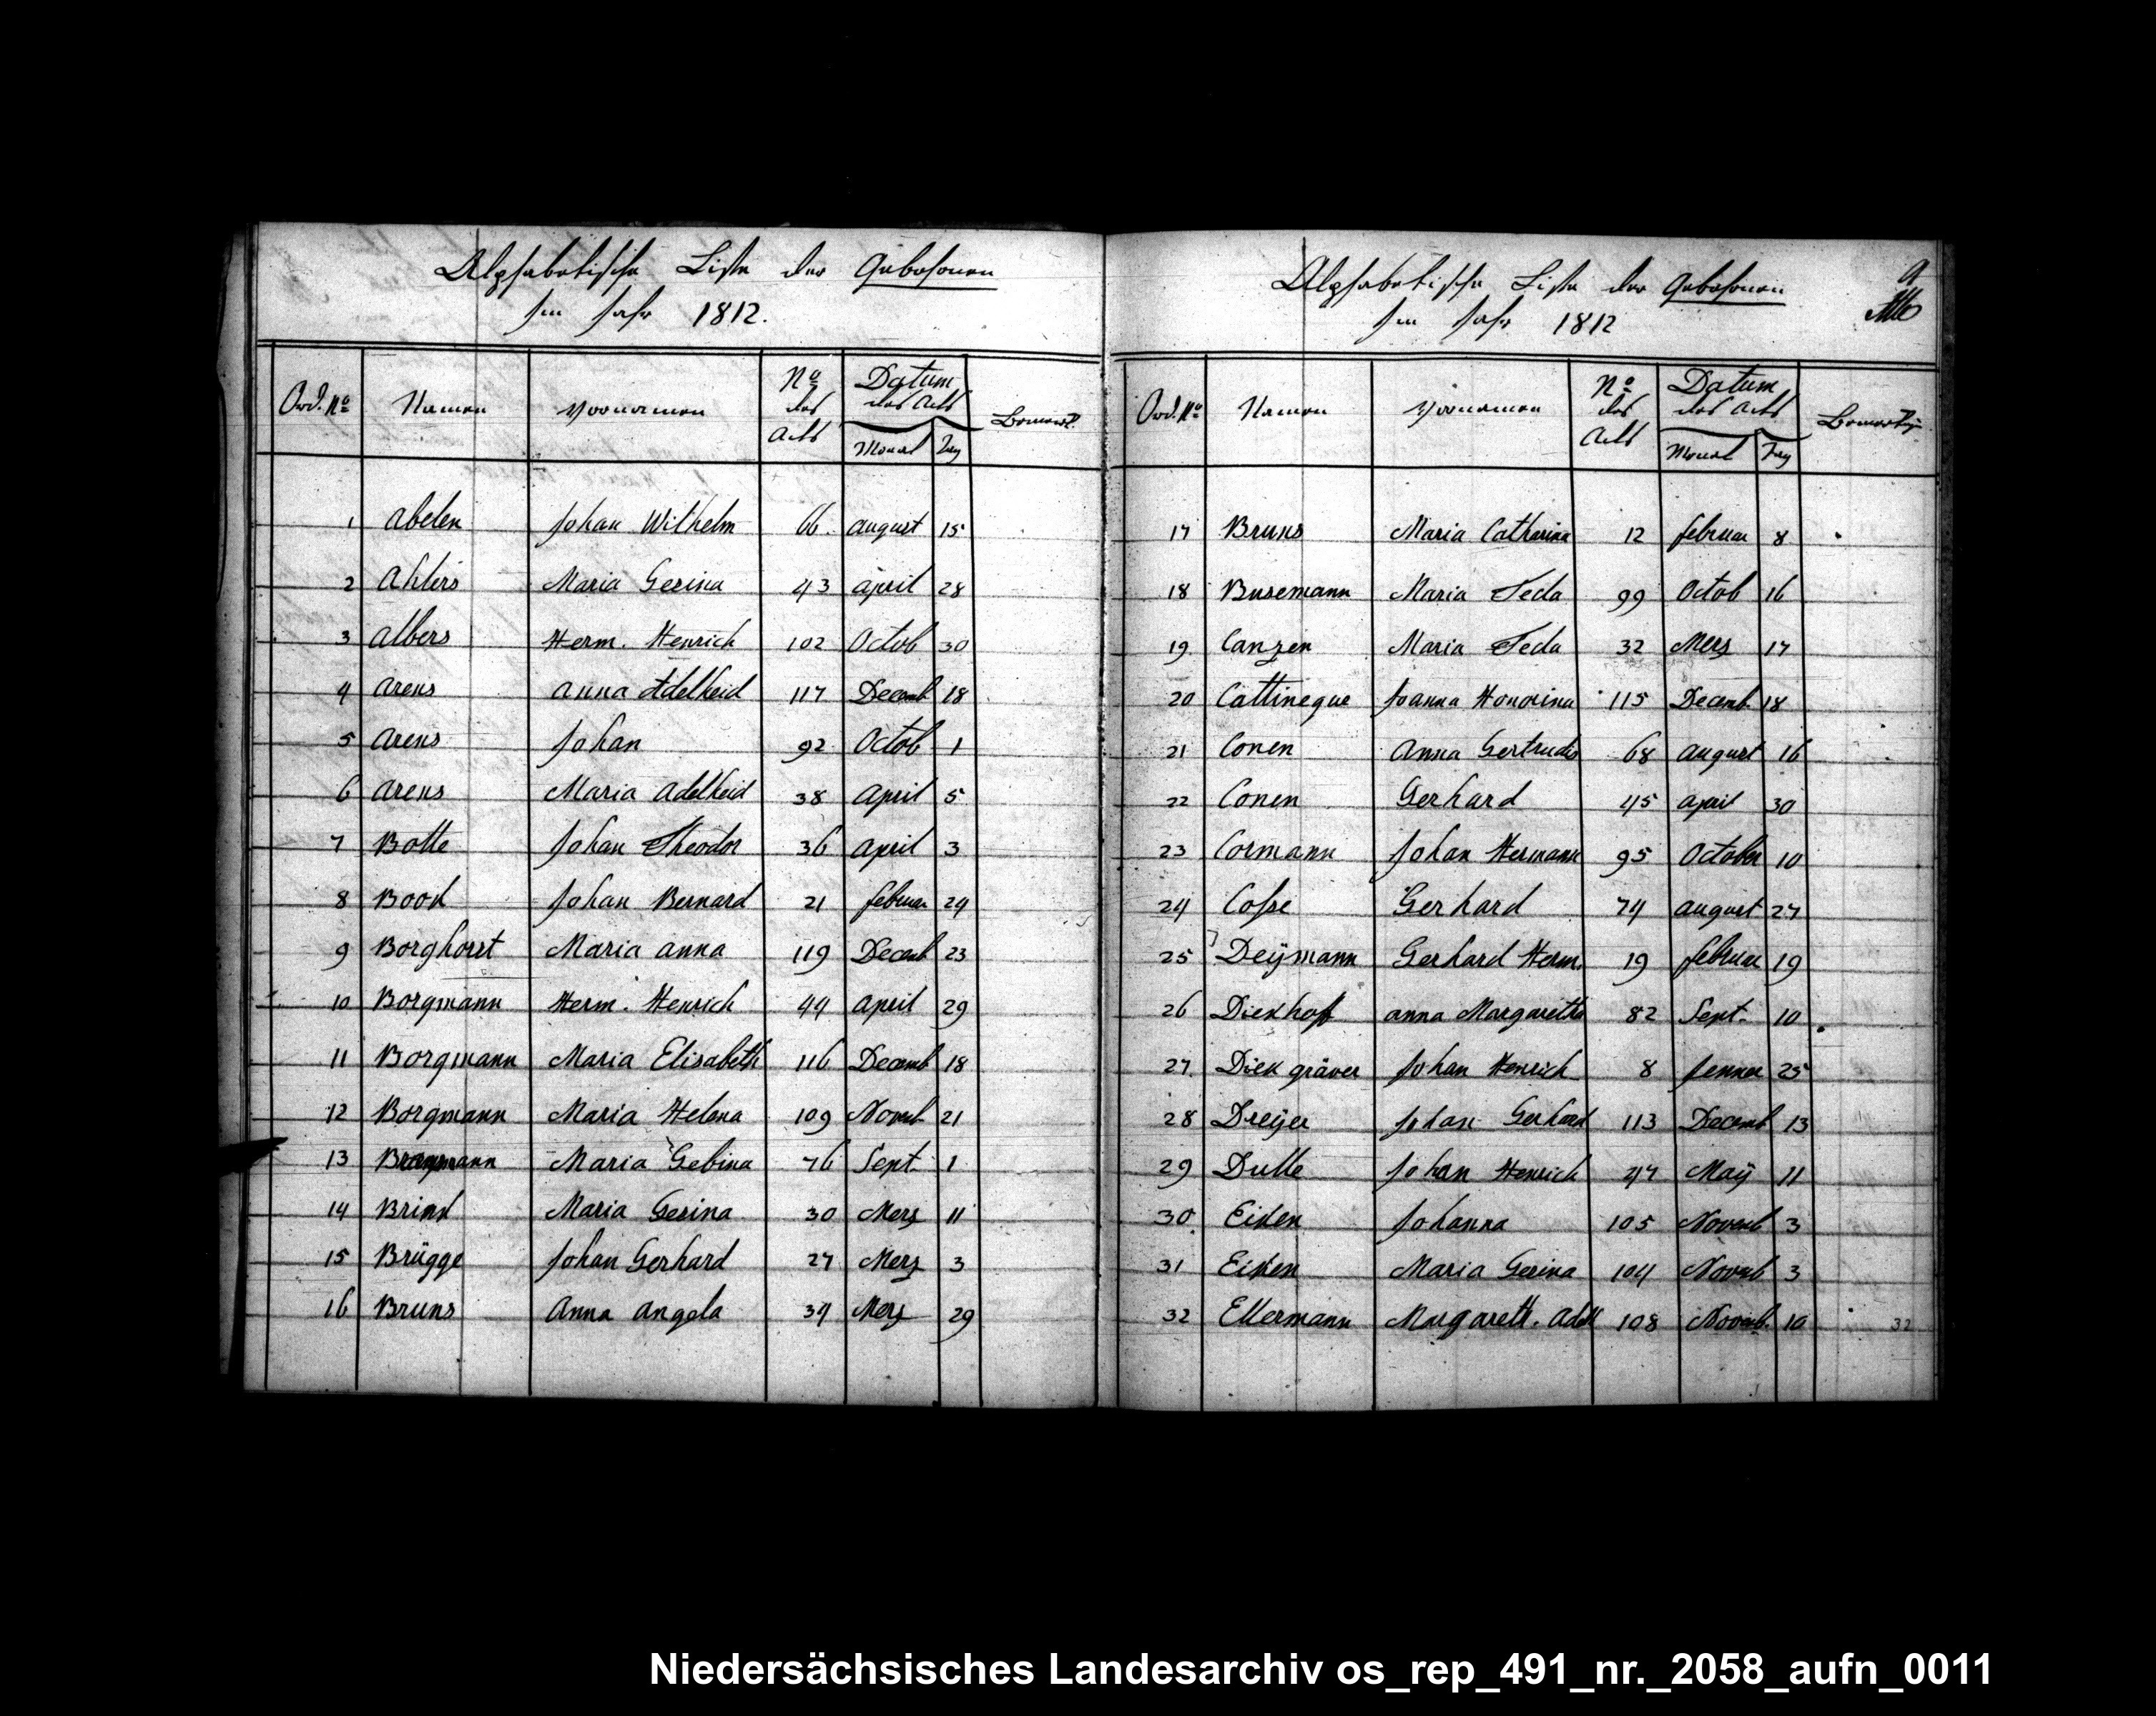 Alphabetische Liste der Gebohrnen
Im Jahr 1812.
Ord. No Namen Vornamen No des Acts Datum des Acts Monat Tag Bemerk.
1 Abelen Johan Wilhelm 66. August 15
2 Ahlers Maria Gesina 43 April 28
3 Albers Herm. Henrich 102 Octob 30
4 Arens Anna Adelheid 117 Decemb 18
5 Arens Johan 92 Octob 1
6 Arens Maria Adelheid 38 April 5
7 Botte Johan Theodor 36 April 3
8 Bood Johan Bernard 21 Februar 24
9 Borghorst Maria Anna 119 Decemb 23
10 Borgmann Herm. Henrich 44 April 29
11 Borgmann Maria Elisabeth 116 Decemb 18
12 Borgmann Maria Helena 109 Novemb 21
13 Maria Gebina 76 Sept. 1
14 Brink Maria Gesina 30 Merz 11
15 Brügge Johan Gerhard 27 Merz 3
16 Bruns Anna Angela 34 Merz 29
Alphabetische Liste der Gebohrnen
Im Jahr 1812
9
Ord. No Namen Vornamen No des Acts Datum des Acts Monat Tag Bemerkung
17 Bruns Maria Catharina 12 Februar 8
18 Busemann Maria Teda 99 Octob 16
19. Canzen Maria Teda 32 Merz 17
20 Cattineque Joanna Honorina 115 Decemb. 18
21 Conen Anna Gertrudis 68 August 16
22 Conen Gerhard 45 April 30
23 Cormann Johan Hermann 95 October 10
24 Cosse Gerhard 74 August 27
25 Deÿmann Gerhard Herm. 19 Februar 19
26 Diekhoff Anna Margaretha 82 Sept. 10
27. Diekgräver Johan Henrich 8 Jenner 25
28 Dreÿer Johan Gerhard 113 Decemb 13
29 Dulle Johan Henrich 47 Maÿ 11
30 Eiken Johanna 105 Novemb 3
31 Eiken Maria Gesina 104 Novemb 3
32 Ellermann Margareth. Adelh 108 Novemb. 10
32
Niedersächsisches Landesarchiv os_rep_491_nr._2058_aufn_0011